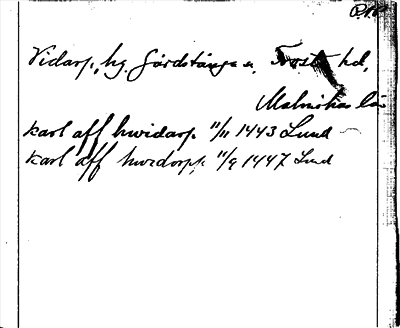 Vidarp, hg. Gårdstånga s. Frosta hd,
Malmöhus län
karl aff hwidarp 11/11 1443 Lund
karl aff hwedorpp 11/9 1447 Lund